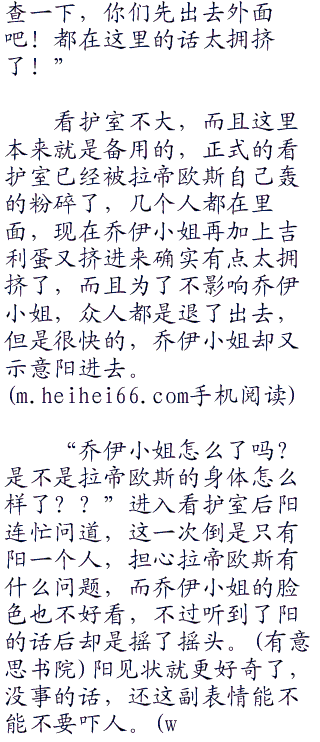 查一下，你们先出去外面
吧！都在这里的话太拥挤
了！”
看护室不大，而且这里
本来就是备用的，正式的看
护室已经被拉帝欧斯自己轰
的粉碎了，几个人都在里
面，现在乔伊小姐再加上吉
利蛋又挤进来确实有点太拥
挤了，而且为了不影响乔伊
小姐，众人都是退了出去，
但是很快的，乔伊小姐却又
示意阳进去。
(m.heihei66.com手机阅读)
“乔伊小姐怎么了吗？
是不是拉帝欧斯的身体怎么
样了？？”进入看护室后阳
连忙问道，这一次倒是只有
阳一个人，担心拉帝欧斯有
什么问题，而乔伊小姐的脸
色也不好看，不过听到了阳
的话后却是摇了摇头。(有意
思书院)阳见状就更好奇了，
没事的话，还这副表情能不
能不要吓人。(w